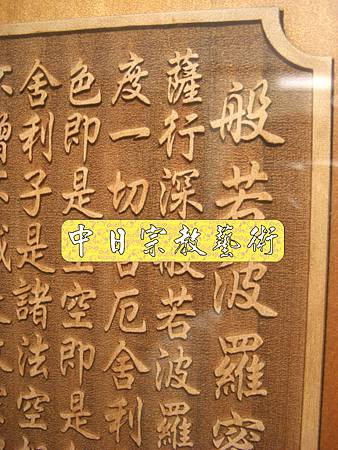 般若波羅密
薩行深般若波羅
度一切苦厄舍利
色即是空空即是
舍利子是諸法空
不增不減
中日宗教藝術